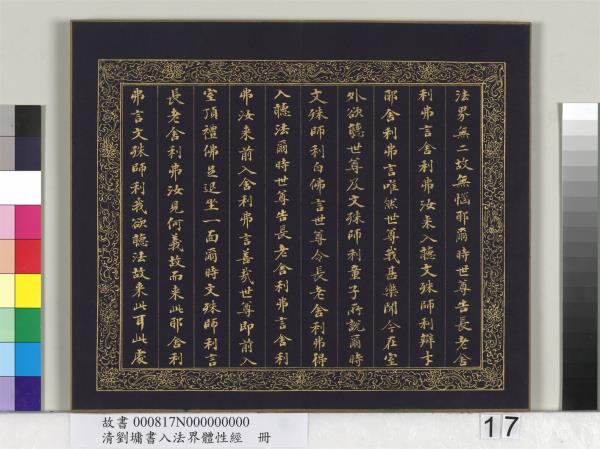 法界無二故無惱耶爾時世尊告長老舍
利弗言舍利弗汝來入聽文殊師利辯才
耶舍利弗言唯然世尊我甚樂聞今在室
外欲聽世尊及文殊師利童子所說爾時
文殊師利白佛言世尊令長老舍利弗得
入聽法爾時世尊告長老舍利弗言舍利
弗汝來前入舍利弗言善哉世尊即前入
室頂禮佛足退坐一面爾時文殊師利言
長老舍利弗汝見何義故而來此耶舍利
弗言文殊師利我欲聽法故來此耳此處
故書 000817N000000000
清劉墉書入法界體性經 冊
17